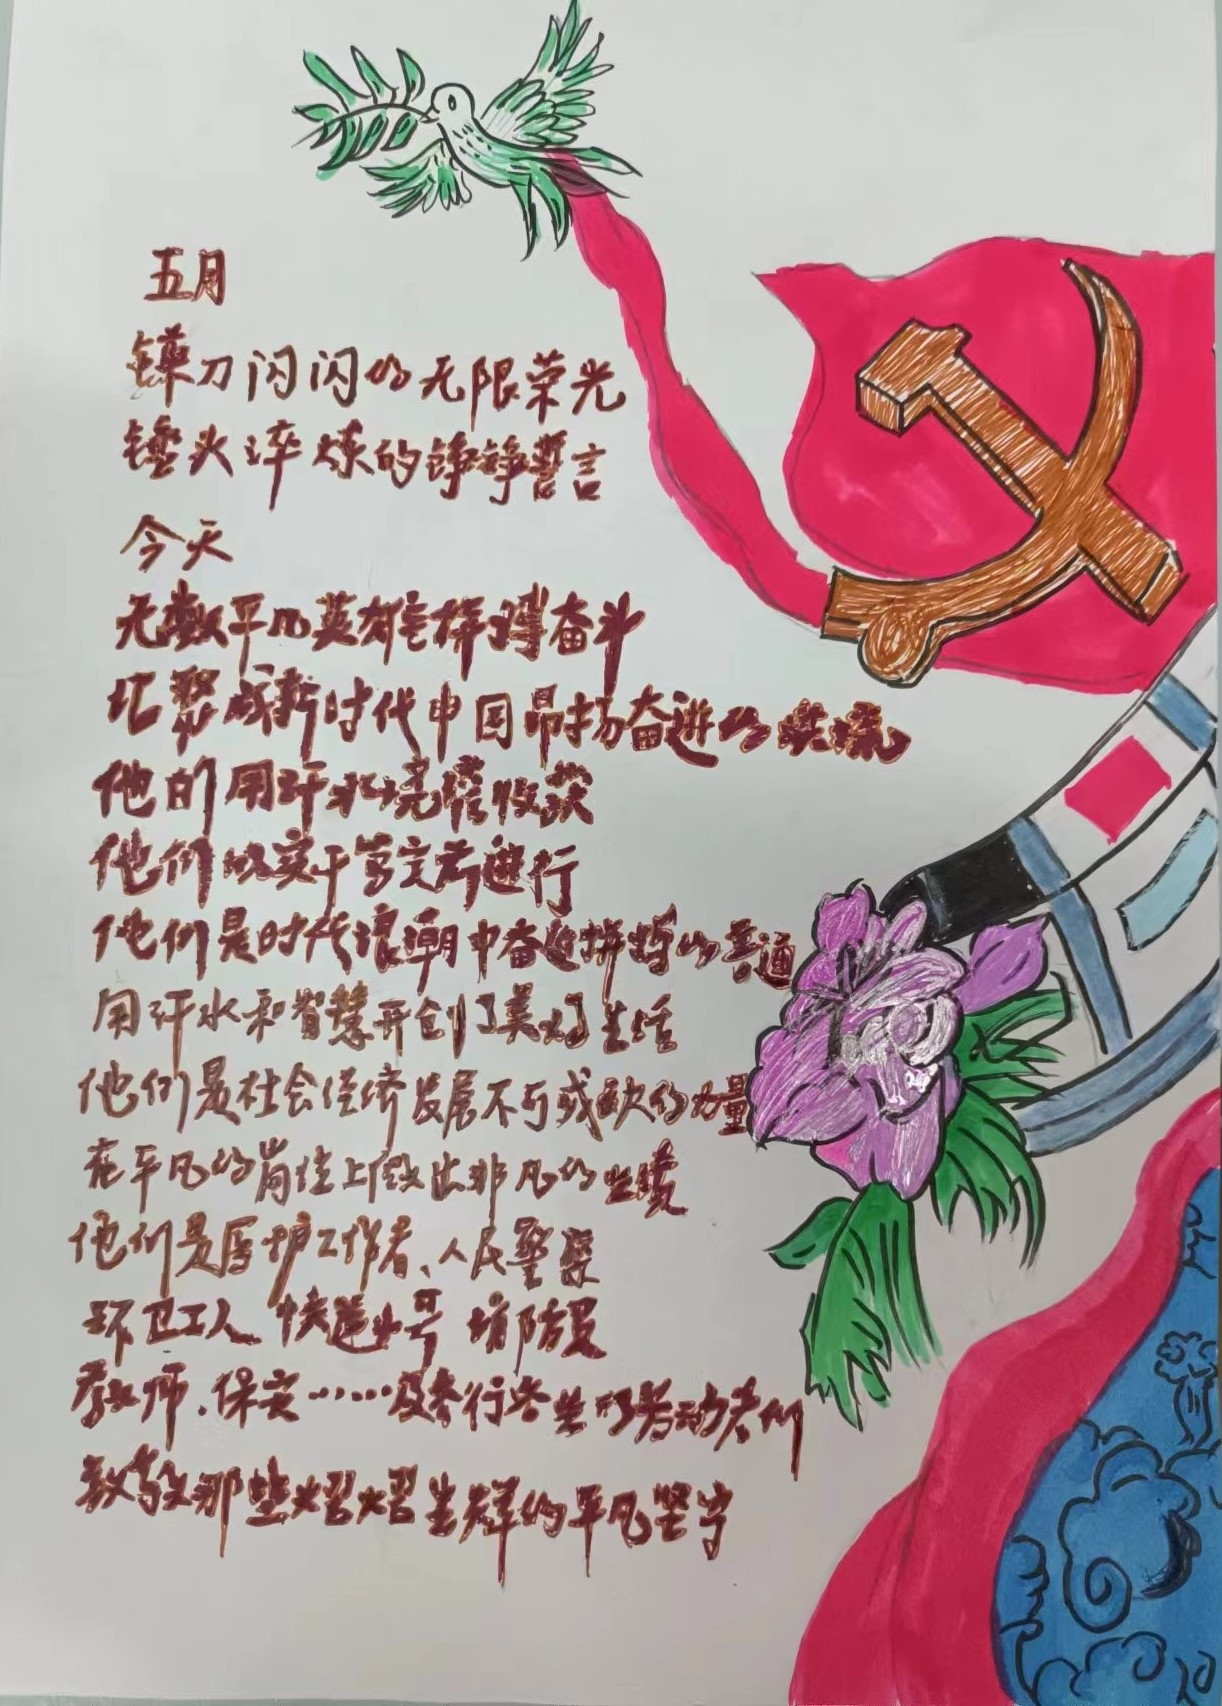 五月
镰刀闪闪的无限荣光
锤头淬炼的铮铮誓言
今天
无数平凡英雄在拼搏奋斗
汇聚成新时代中国昂扬奋进的洪流
他们用汗水浇灌收获
他们以实干笃定前进行
他们是时代浪潮中奋进拼搏的普通
用汗水和智慧开创了美好生活
他们是社会经济发展不可或缺的力量
在平凡的岗位上做出非凡的业绩
他们是医护工作者、人民警察
环卫工人 快递小哥 消防员
教师、保安……及各行各业的劳动者们
致敬那些熠熠生辉的平凡坚守